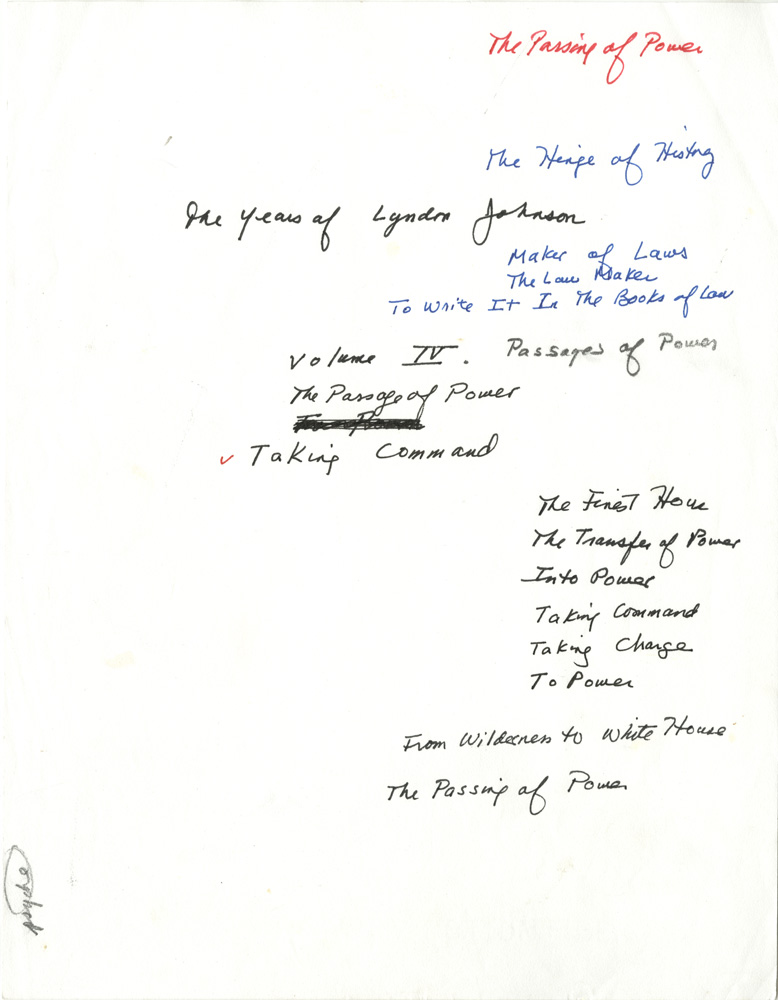 The Passing of Power
The Hinge of History
The Years of Lyndon Johnson
Maker of Laws
The Law Maker
To Write It In The Books of Law
Volume IV. Passages of Power
The Passage of Power
✓ Taking Command
The Finest Hour
The Transfer of Power
Into Power
Taking Command
Taking Charge
To Power
From Wilderness to White House
The Passing of Power